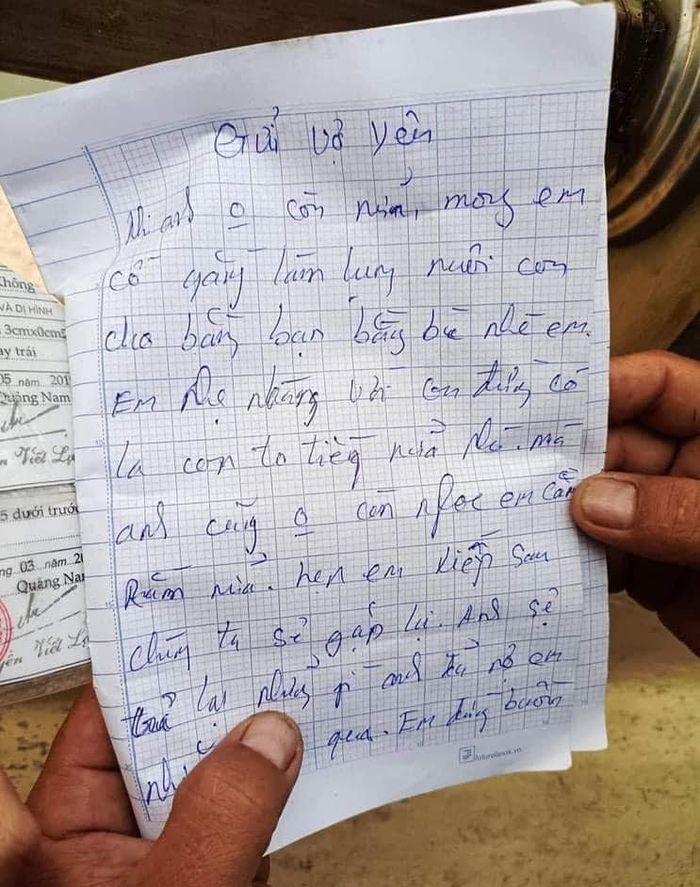 Gửi vợ yên
khi anh o còn nữa, mong em
cố gắng làm lụng nuôi con
cho bằng bạn bằng bè nhé em.
Em nhẹ nhàng với con đừng có
la con to tiếng nữa
anh cũng o còn em cằn
Rằn nữa. hẹn em kiếp sau
chúng ta sẽ gặp lại. Anh sẽ
trả lại những gì anh đã nợ em
qua. Em đừng buồn
futurebook.vn
không
VÀ DỊ HÌNH
3cmx0cm5
ay trái
05 năm 201
Quảng Nam
Viết
5 dưới trước
ng 03 năm 2
Quảng Na
Viết